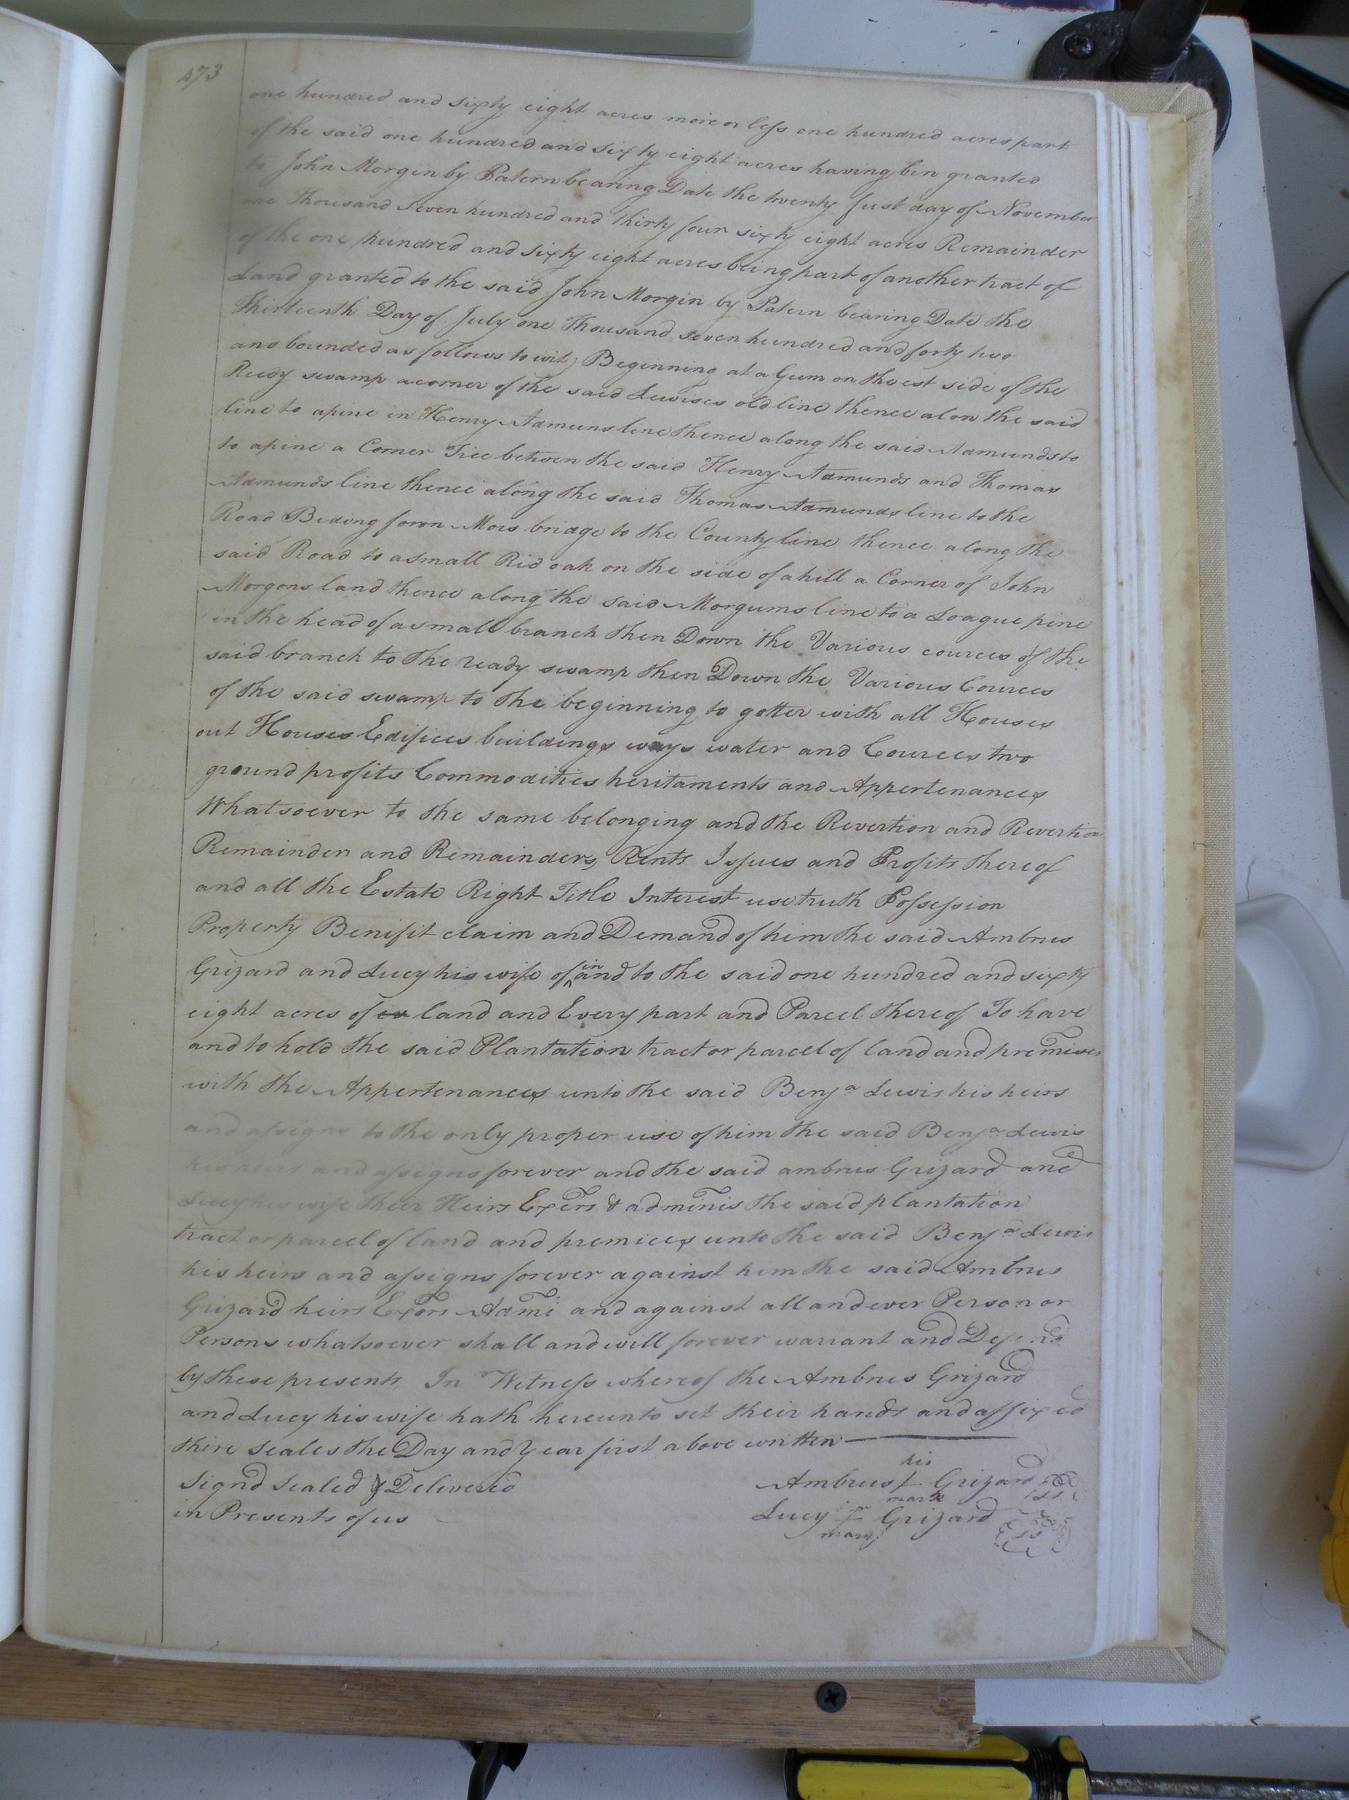 473
one hundred and sixty eight acres more or less one hundred acres part
of the said one hundred and sixty eight acres having bin granted
to John Morgin by Patern bearing Date the twenty fust day of November
one Thousand seven hundred and thirty four sixty eight acres Remainder
of the one hundred and sixty eight acres being part of another tract of
Land granted to the said John Morgin by Patern bearing Date the
thirteenth Day of July one Thousand seven hundred and forty two
and bounded as follows to wit) Beginning at a Gum on the est side of the
Reedy swamp a corner of the said Lewises old line thence alon the said
line to apine in Henry Admuns line thence along the said Admunds to
to apine a Corner Tree between the said Henry Admunds and Thomas
Admunds line thence along the said Thomas Admunds line to the
Road Biding from Mors bridge to the County line thence along the
said Road to a small Rid oak on the side of a hill a Corner of John
Morgons land thence along the said Morgums line to a Loague pine
in the head of a small branch then Down the Various cources of the
said branch to the ready swamp then Down the Various Cources
of the said swamp to the beginning to gotter with all Houses
out Houses Edifices buildings ways water and Cources two
ground profits Commodities heritaments and Appertenances
Whatsoever to the same belonging and the Revertion and Revertion
Remainder and Remainders, Rents Issues and Profits thereof
and all the Estate Right Title Interest use truth Possession
Property Benifit claim and Demand of him the said Ambrus
Grizard and Lucy his wife of in and to the said one hundred and sixty
eight acres of land and Every part and Parcel thereof To have
and to hold the said Plantation tract or parcel of land and premises
with the Appertenances unto the said Benja Lewis his heirs
and assigns to the only proper use of him the said Benja Lewis
his heirs and assigns forever and the said ambrus Grizard and
Lucy his wife their Heirs Exers & adminis the said plantation
tract or parcel of land and premices unto the said Benja Lewis
his heirs and assigns forever against him the said Ambrus
Grizard heirs Exors Admi and against all and ever Person or
Persons whatsoever shall and will forever warrant and Defend
by these presents In Witness whereof the Ambrus Grizard
and Lucy his wife hath hereunto set their hands and affixed
thire seales the Day and Year first above written
Signd Sealed & Delivered
in Presents of us
his
Ambrus Grizard
mark
Lucy Grizard
mark